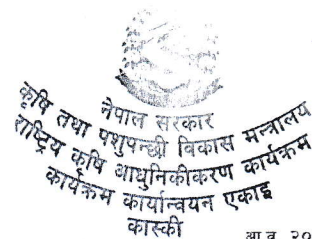 नेपाल सरकार
कृषि तथा पशुपन्छी विकास मन्त्रालय
राष्ट्रिय कृषि आधुनिकीकरण कार्यक्रम
कार्यक्रम कार्यान्वयन एकाइ
कास्की
आ.व. २०